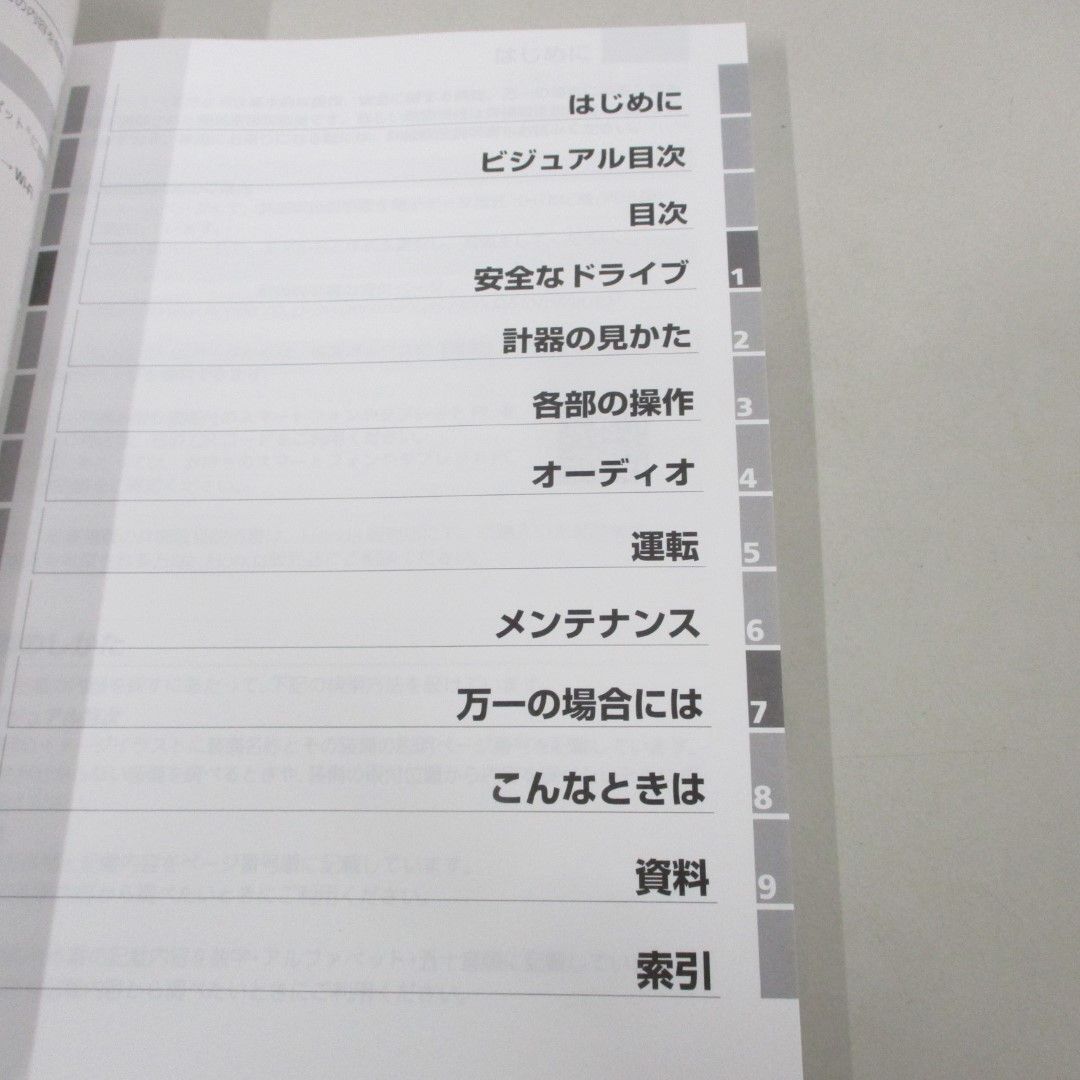 はじめに
ビジュアル目次
目次
安全なドライブ 1
計器の見かた 2
各部の操作 3
オーディオ 4
運転 5
メンテナンス 6
万一の場合には 7
こんなときは 8
資料 9
索引